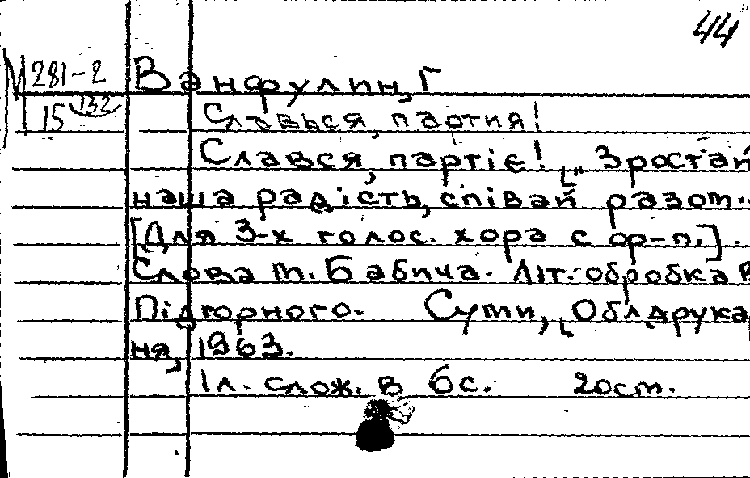 44
М 281-2 Ванфулин, Г
15 132 Славься, партия!
Слався, партіє! [„Зростай
наша радість, співай разом..
[Для 3-х голос. хора с ор-п.].
Слова т. Бабича. Літ. обробка В
Підгорного. Суми, [Облдрукар
ня, 1963.
1 л. слож. в 6 с. 20 см.